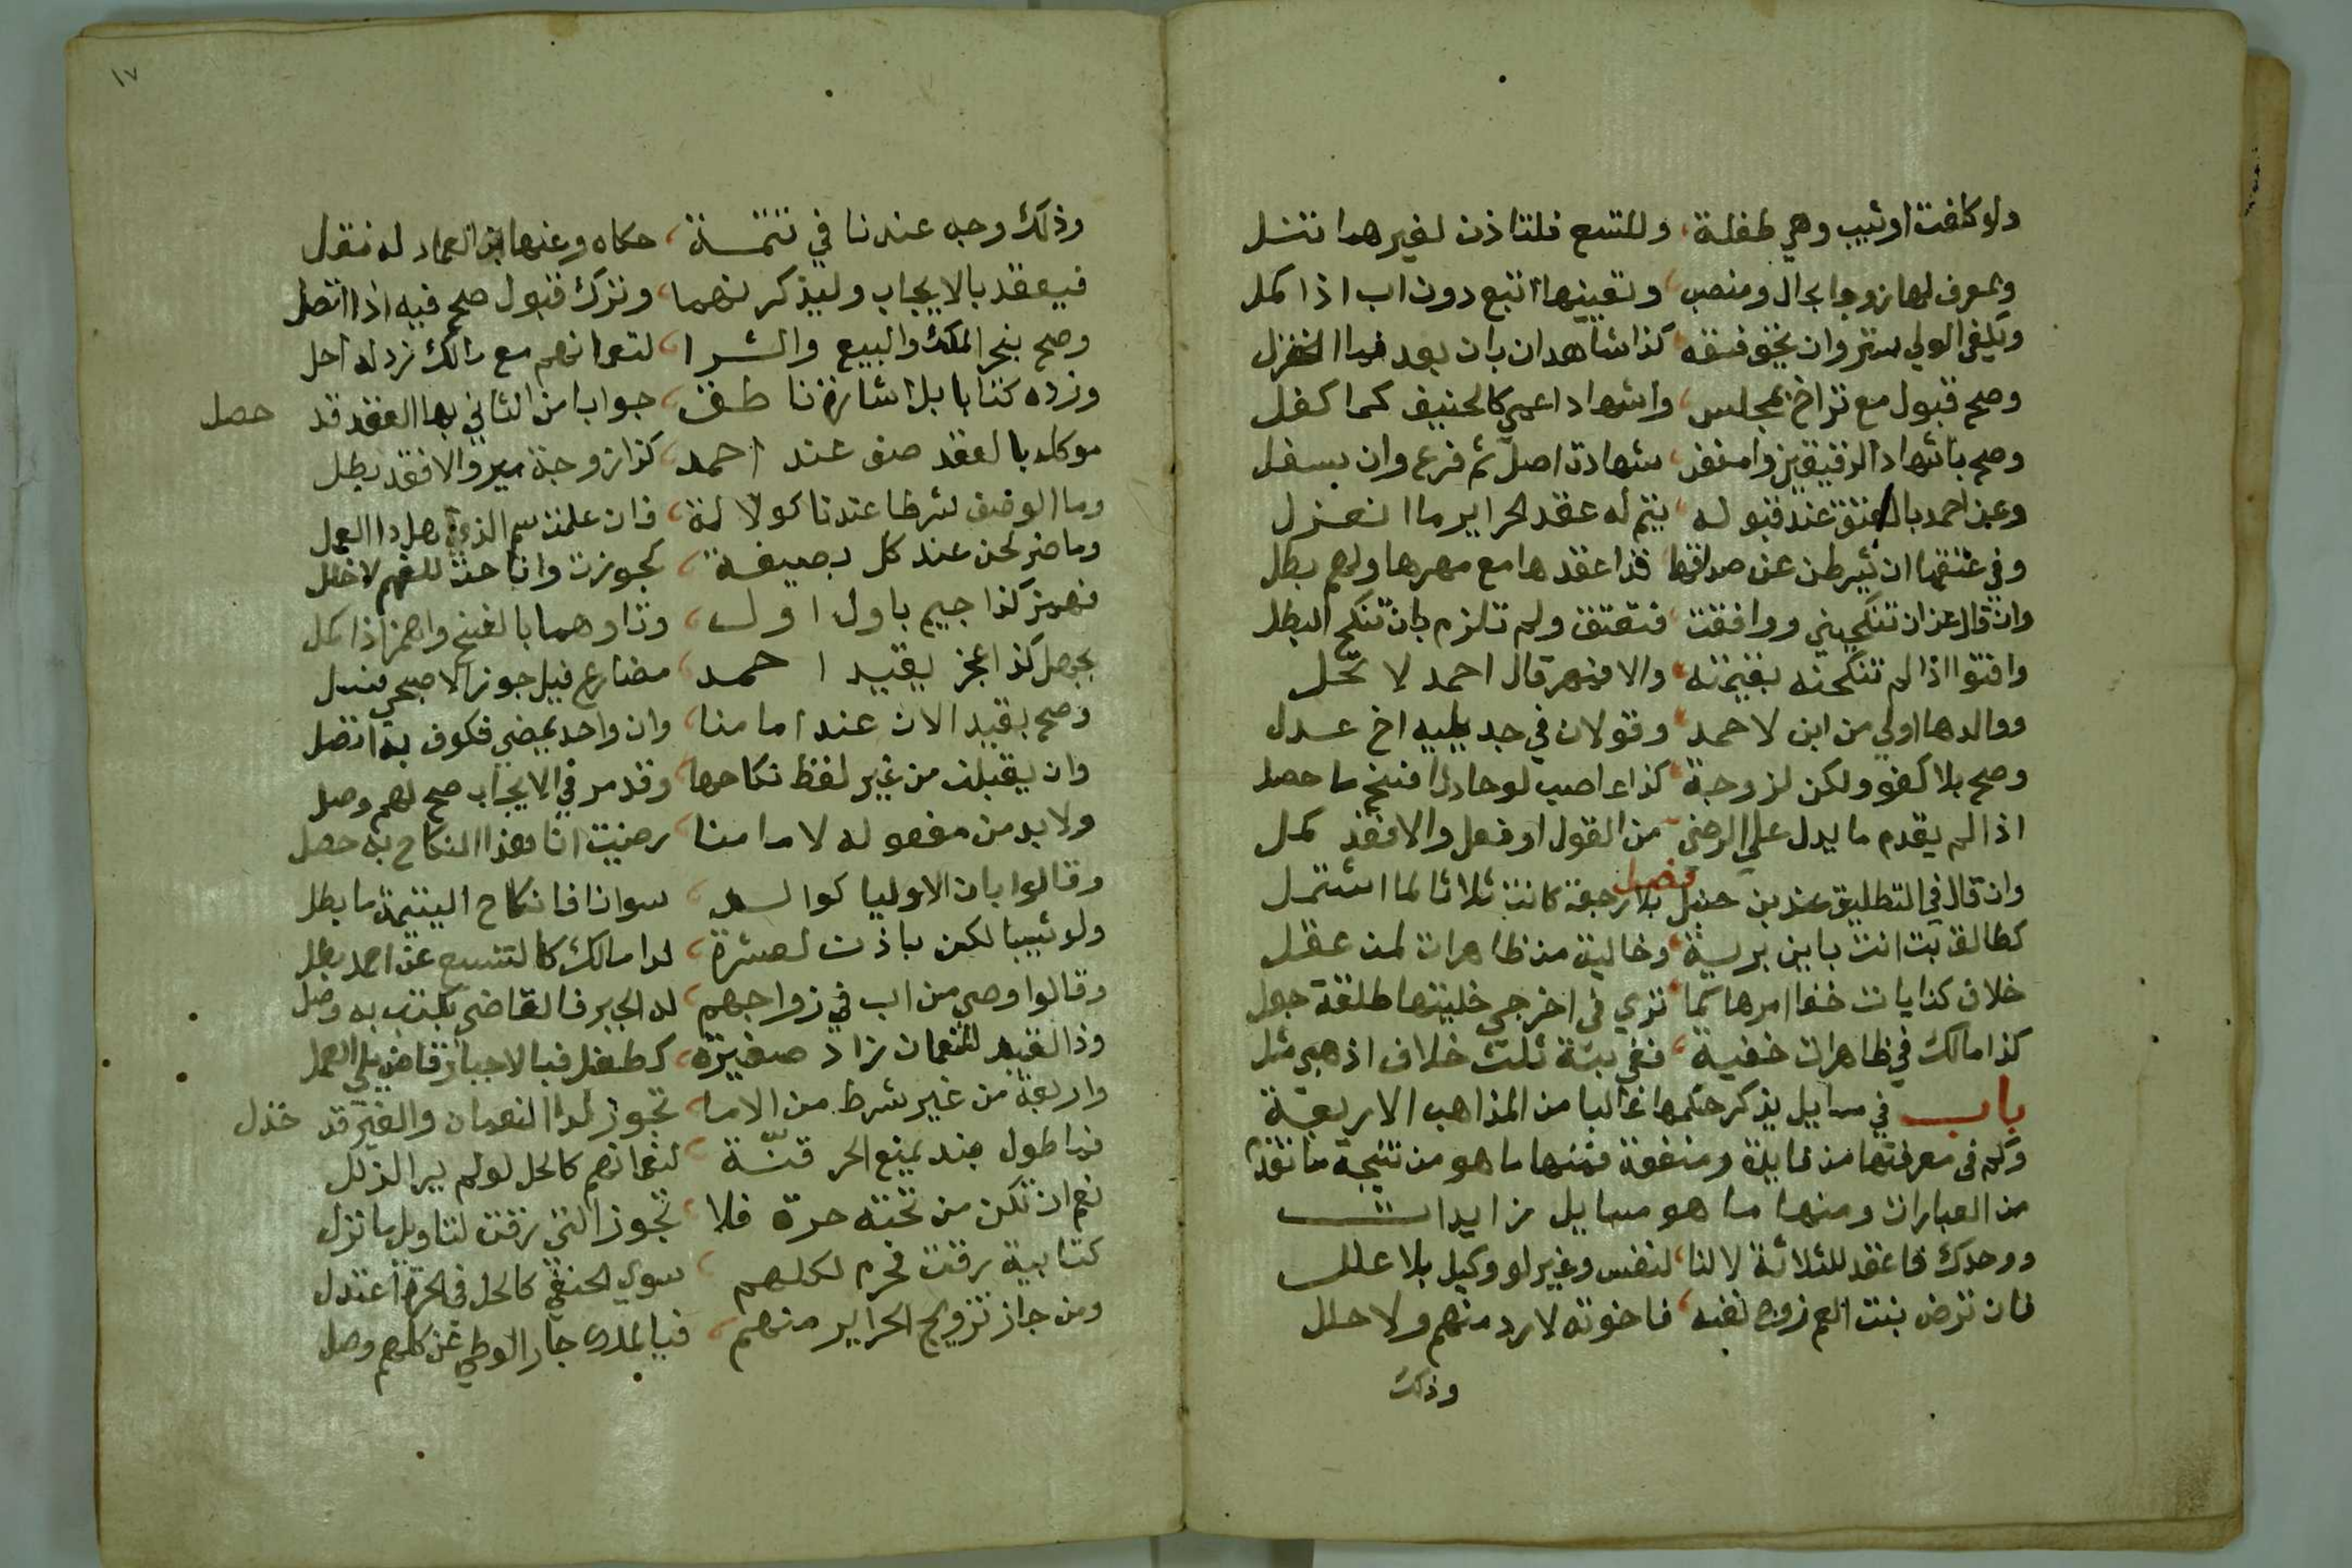 ولو كلفت او ثيب وهي طفلة، وللتسع فلتاذن لغير هما تنسل
ويعرف لها زوجا بحال ومنصب، وتعيينها اتبع دون اب اذا كمل
ويكفي الولي ستر وان يخف فسقه، كذا شاهدان بان بعد
وصح قبول مع تراخ بمجلس، واشهاد اعمى كالحنيف كما كفل
وصح باشهاد الرقيقين وامنعن، شهادة اصل ثم فرع وان يسفل
وعن احمد بالعتق عند قبوله، يتم له عقد الحراير ما انعزل
وفي عتقها ان يشرطن عن صداقها، فذا عقدها مع مهرها ولهم بطل
وان قال عن ان تنكحيني ووافقت، فتعتق ولم تلزم بان تنكح البطل
وافتوا اذا لم تنكحنه بقيمته، والا فمهر قال احمد لا تحل
ووالدها اولي من ابن لاحمد، وقولان في جد يليه اخ عدل
وصح بلا كفو ولكن لزوجة، كذا عاصب لو حادثا فسخ ما حصل
اذا لم يقدم ما يدل علي الرضى، من القول او فعل والا فقد كمل
فصل
وان قال في التطليق عند بن حنبل بلا رجعة كانت ثلاثا لما اشتمل
كطالق بت انت باين برية، وخالية من ظاهرات لمن عقل
خلاف كنايات خفا امرها كما، تري في اخرجي خليتها طلقة جعل
كذا مالك في ظاهرات خفية، ففي بتة ثلث خلاف اذهبي مثل
باب في مسايل يذكر حكمها غالبا من المذاهب الاربعة
وكم في معرفتها من فايدة ومنفعة فمنها ما هو من نتيجة ما تقدم
من العبارات ومنها ما هو مسايل زايدات
ووحدك فاعقد للثلاثة لا لنا، لنفس وغير لو وكيل بلا علل
فان ترض بنت العم زوج نفسه، فاخوته لا رد منهم ولا حلل
وذلك
١٧
وذلك وجه عندنا في تتمة، حكاه وعنها ابن العماد له نقل
فيعقد بالايجاب وليذكرنهما، وترك قبول صح فيه اذا اتصل
وصح بنحر الملك والبيع والشرا، لنعمانهم مع مالك زد له احل
وزده كتابا بل اشارتنا طف، جوابا من الثاني بها العقد قد حصل
موكله بالعقد صف عند احمد، كذا زوجة ميز والا فقد بطل
وما الوصف شرطا عندنا كولاية، فان علمت سم الذي
وما ضر لحن عند كل بصيغة، كجوزت وانا حت للفهم لا خلل
فهمز كذا جيم باول اول، وتا وهما بالفتح واهمز اذا كمل
بجهل كذا عجز يقيد احمد، مضارع قيل جوز الاصبحي
وصح بقيد الان عند امامنا، وان واحد يمضي فكوف به اتصل
وان يقبلن من غير لفظ نكاحها، وقد مر في الايجاب صح لهم وصل
ولا بد من مفعوله لا مامنا، رضيت انا هذا النكاح به حصل
وقالوا بان الاوليا كوالد، سوانا فانكاح اليتيمة ما بطل
ولو ثيبا لكن باذن لعشرة، لدا مالك كالتسع عن احمد
وقالوا وصي من اب في زواجهم، لد الجبر فالقاضي يكتب به وصل
وذا القيد للنعمان زاد صغيرة، كطفل فبالاجبار قاض يلي العمل
واربعة من غير شرط من الاما، تجوز لدا النعمان والغير قد خذل
فما طول عند يمنع الحر قنة، لنعمانهم كالحل لو لم ير الذلل
نعم ان تكن من تحته حرة فلا، تجوز التي رقت لتاويل ما نزل
كتابية رقت فحرم لكلهم، سوي الحنفي كالحل في الحرة اعتدل
ومن جاز تزويج الحراير منهم، فبالملك جاز الوطي عن كلهم وصل